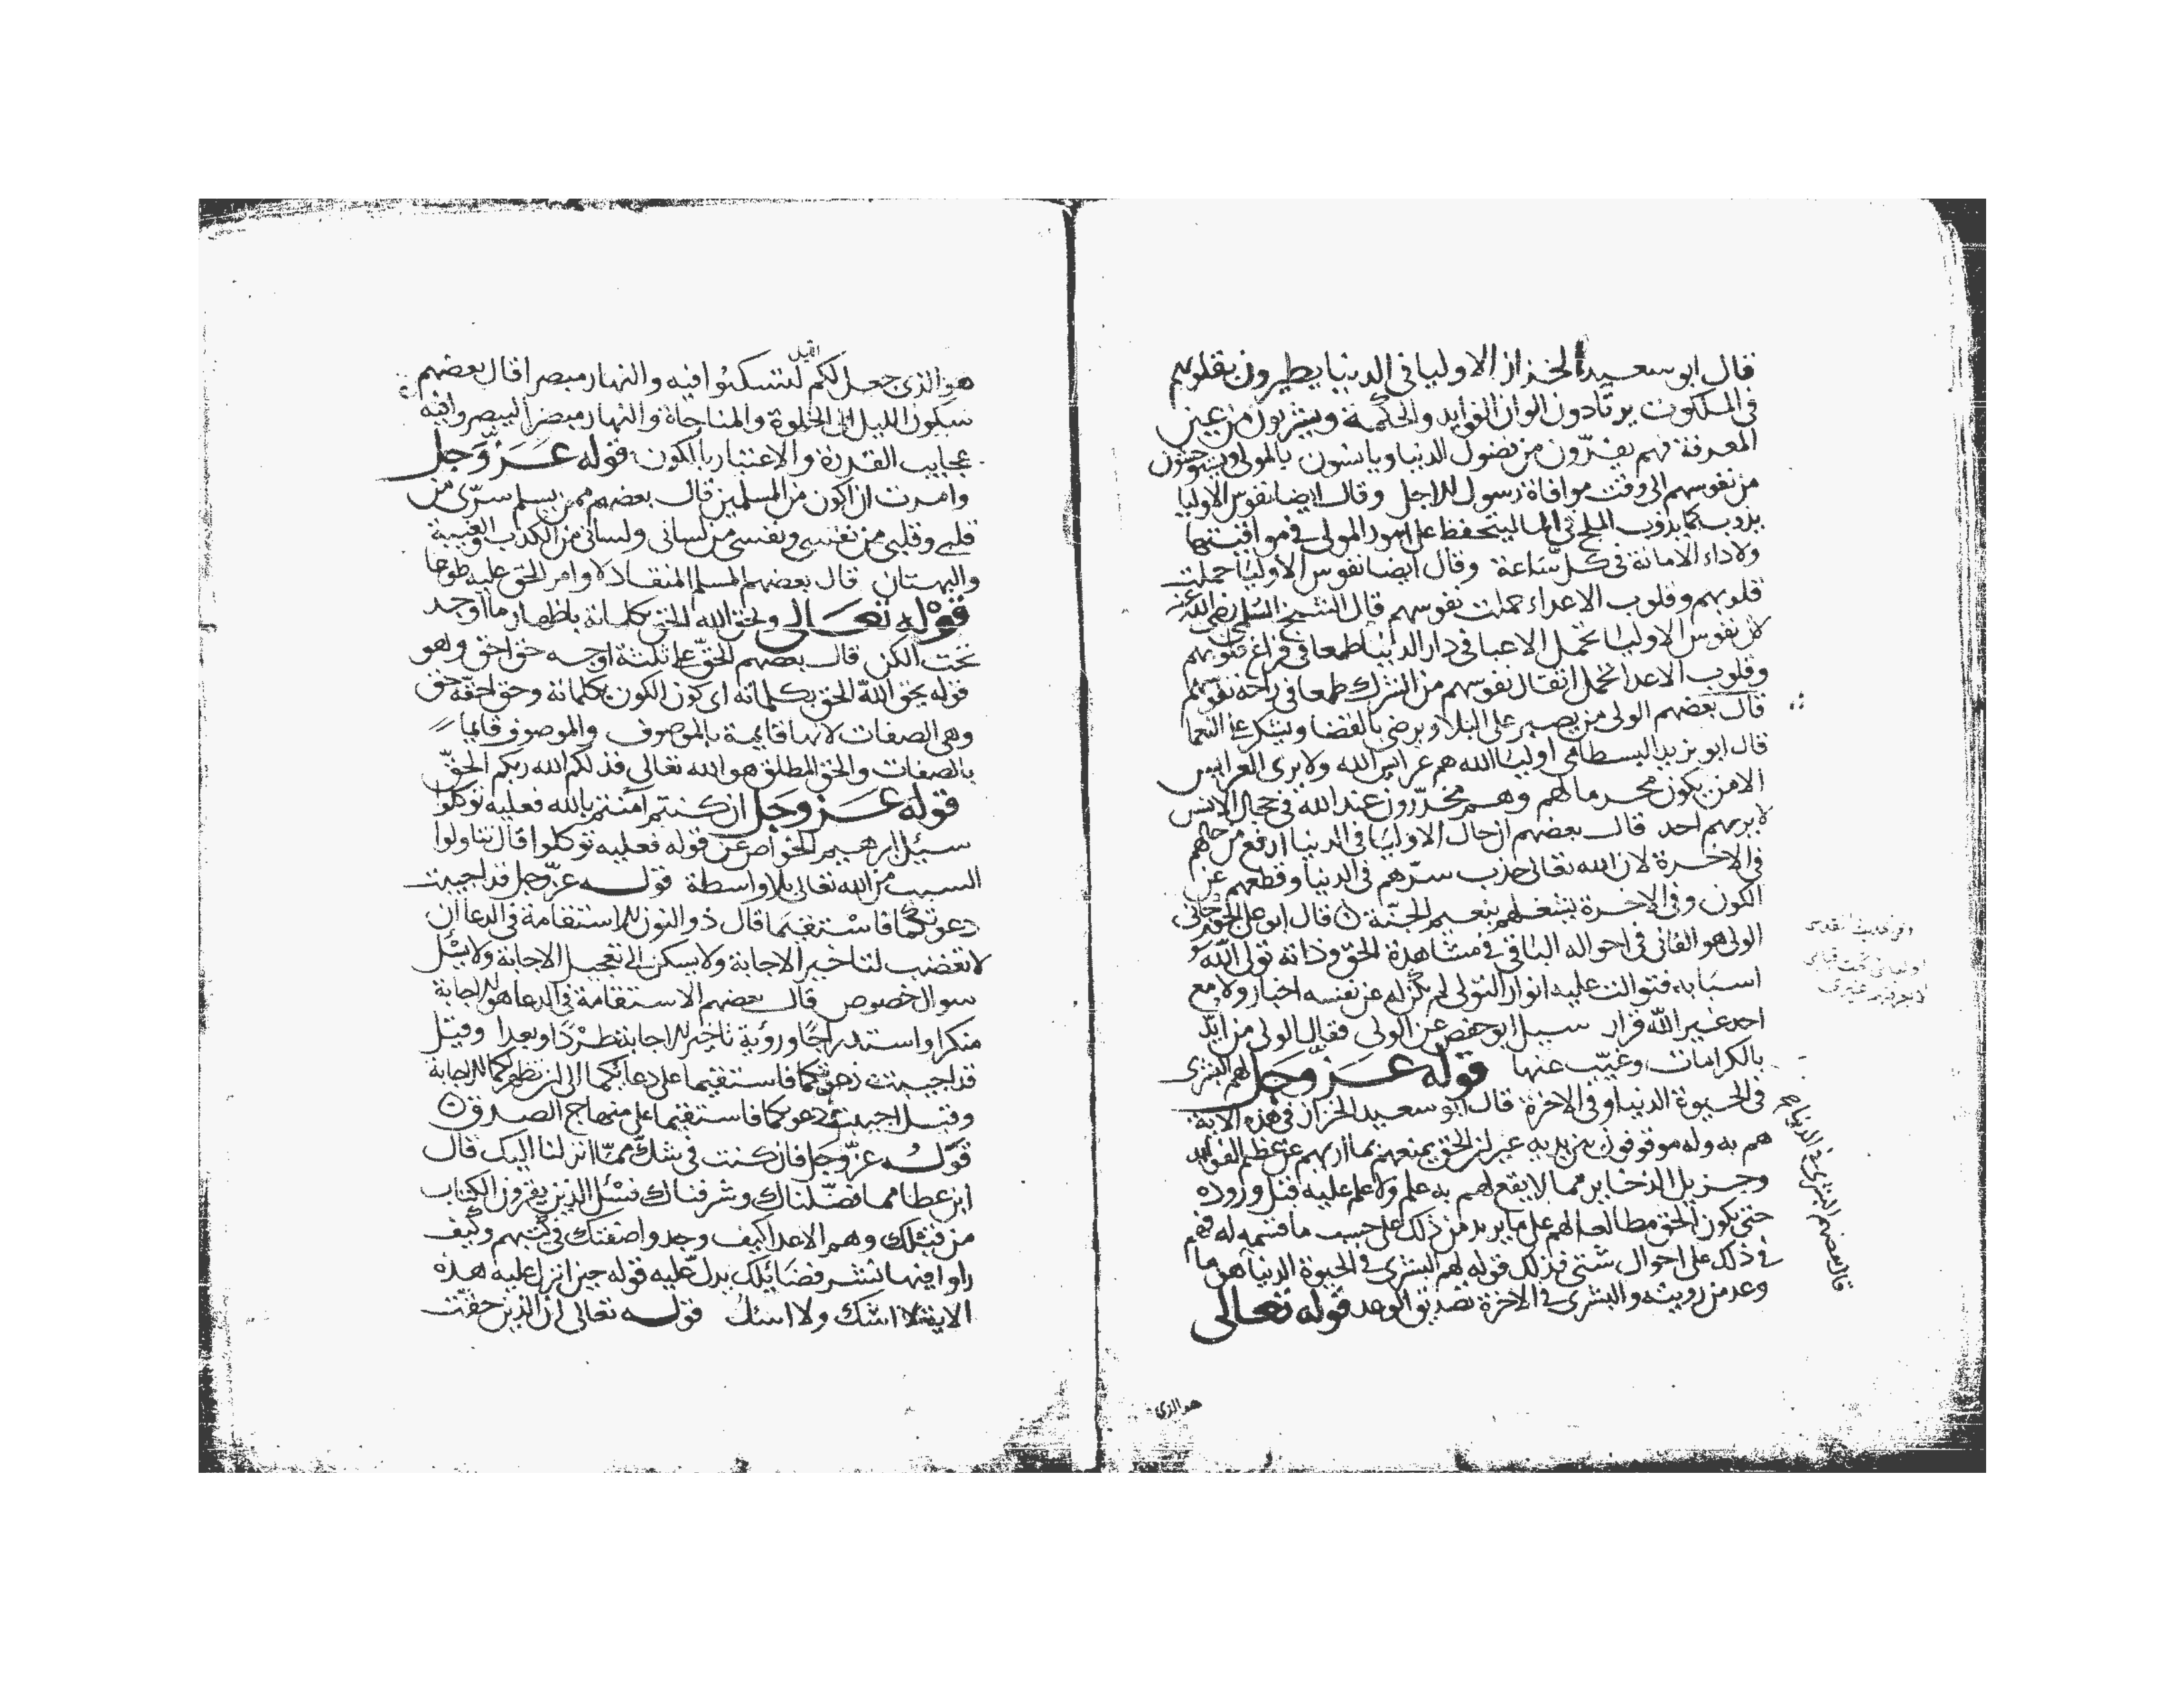 قال ابو سعيد الخزاز الاوليا فى الدنيا يطيرون بقلوبهم
فى الملكوت يرتادون الوان الفوايد والحكمة ويشربون من عين
المعرفة فهم يفرّون من فضول الدنيا ويانسون بالمولى ويستوحشون
من نفوسهم الى وقت موافاة رسول الاجل وقال ايضا نفوس الاوليا
يذوب كما يذوب الملح فى الما ليتحفظ على امور المولى فى مواقيتها
ولاداء الامانة فى كل ساعة وقال ايضا نفوس الاوليا حملت
قلوبهم وقلوب الاعداء حملت نفوسهم قال الشيخ السلمى رضى الله عنه
لان نفوس الاوليا تحمل الاعبا فى دار الدنيا طمعا فى فراغ قلوبهم
وقلوب الاعدا تحمل اثقال نفوسهم من الشرك طمعا فى راحة نفوسهم
قال بعضهم الولى من يصبر على البلا ويرضى بالقضا ويشكر على النعما
قال ابو يزيد البسطامى اوليا الله هم عرايس الله ولا يرى العرايس
الا من يكون محرما لهم وهم مخدّرون عند الله فى حجال الانس
لا يريهم احد قال بعضهم ان حال الاوليا فى الدنيا ارفع من حالهم
فى الاخرة لان الله تعالى جذب سرّهم فى الدنيا وقطعهم عن
الكون وفى الاخرة يشغلهم بنعيم الجنّة قال ابو على الجوزجانى
الولى هو الفانى فى احواله الباقى فى مشاهدة الحق وذاته تولى الله
اسبابه فتوالت عليه انوار التولى لم يكن له عن نفسه اخبار ولا مع
احد غير الله قرار سيل ابو حفص عن الولى فقال الولى من ايّد
بالكرامات وغيّب عنها قوله عزّ وجل لهم البشرى
فى الحيوة الدنيا وفى الاخرة قال ابو سعيد الخزاز فى هذه الاية
هم به وله موقوفون بين يديه غير ان الحق يمنعهم بما اريهم عن عظم الفوايد
وجزيل الذخاير مما لا يقع لهم به علم ولا علم عليه قبل وروده
حتى يكون الحق مطالعا لهم على ما يريد من ذلك على حسب ما قسمه له فهم
فى ذلك على احوال شتى فذلك قوله لهم البشرى فى الحيوة الدنيا هى ما
وعد من رويته والبشرى فى الاخرة تصديق الوعد قوله تعالى
قال بعضهم البشرى فى الدنيا هو
هو الذى
هو الذى جعل لكم الليل لتسكنوا فيه والنهار مبصرا قال بعضهم
سكون الليل الى الخلوة والمناجاة والنهار مبصرا ليبصروا فيه
عجايب القدرة والاعتبار بالكون قوله عزّ وجل
وامرت ان اكون من المسلمين قال بعضهم ممن يسلم سرّى من
قلبى وقلبى من نفسى ونفسى من لسانى ولسانى من الكذب والغيبة
والبهتان قال بعضهم المسلم المنقاد لاوامر الحق عليه طوعا
قوله تعالى ويحق الله الحق بكلماته باظهار ما اوجد
تحت الكن قال بعضهم الحق على ثلثة اوجه حق احق وهو
قوله يحق الله الحق بكلماته اى كون الكون بكلماته وحق احقه حق
وهى الصفات لانها قايمة بالموصوف والموصوف قايما
بالصفات والحق المطلق هو الله تعالى فذلكم الله ربكم الحقّ
قوله عزّ وجل ان كنتم امنتم بالله فعليه توكلوا
سيل ابرهيم الخواص عن قوله فعليه توكلوا قال تناولوا
السبب من الله تعالى بلا واسطة قوله عزّ وجل قد اجيبت
دعوتكما فاستقيما قال ذو النون الاستقامة فى الدعا ان
لا تغضب لتاخير الاجابة ولا يسكن الى تعجيل الاجابة ولا يسئل
سوال خصوص قال بعضهم الاستقامة فى الدعا هو الاجابة
منكرا واستدراجًا ورؤية تاخير الاجابة طردًا وبعدا وقيل
قد اجيبت دعوتكما فاستقيما على دعائكما الى ان تظهر لكما الاجابة
وقيل اجيبت دعوتكما فاستقيما على منهاج الصدق
قوله عزّ وجل فان كنت فى شكّ ممّا انزلنا اليك قال
ابن عطا مما فضّلناك وشرفناك فسئل الذين يقرون الكتاب
من قبلك وهم الاعدا كيف وجدوا صفتك فى كتبهم وكيف
راوا فيها نشر فضايلك يدل عليه قوله حين انزل عليه هذه
الاية لا اشك ولا اسئل قوله تعالى ان الذين حقّت